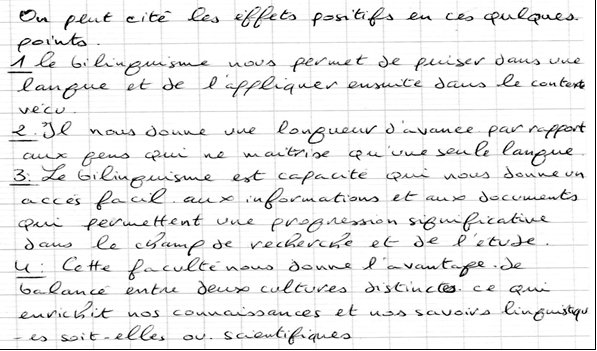 On peut cité les effets positifs en ces quelques
points.
1 le bilinguisme nous permet de puiser dans une
langue et de l'appliquer ensuite dans le contexte
vécu.
2. Il nous donne une longueur d'avance par rapport
aux gens qui ne maitrise qu'une seule langue
3: Le bilinguisme est capacité qui nous donne un
accés facil aux informations et aux documents
qui permettent une progression significative
dans le champ de recherche et de l'étude.
4: Cette faculté nous donne l'avantage de
balance entre deux cultures distinctes ce qui
enrichit nos connaissances et nos savoirs linguistiqu
-es soit-elles ou scientifiques